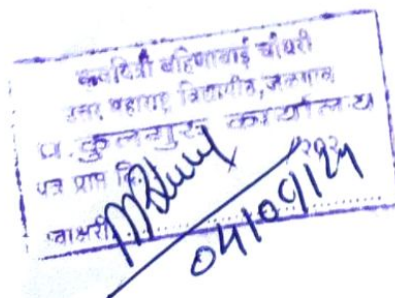 कवयित्री बहिणाबाई चौधरी
उत्तर महाराष्ट्र विद्यापीठ, जळगाव
प्र. कुलगुरू कार्यालय
पत्र प्राप्त दि.
स्वाक्षरी